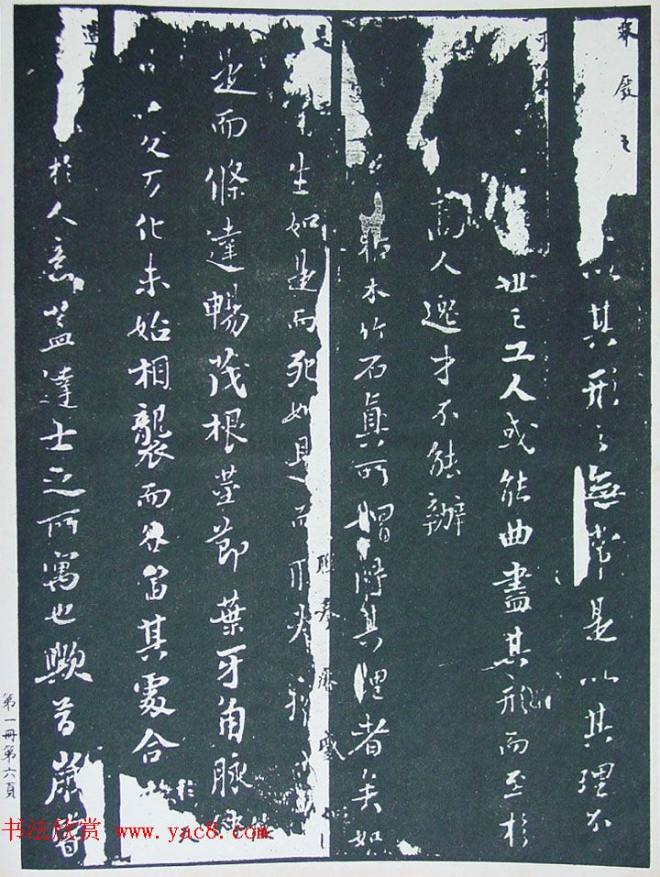 以其形之無常是以其理不
世之工人或能曲盡其形而至於
高人逸才不能辦
木竹石真可謂得其理者矣如
生如是而死如是而
是而條達暢茂根莖節葉牙角脈
變万化未始相襲而各當其處合於
於人意蓋達士之所寓也歟昔歲嘗
第一冊第六頁
书法欣赏 www.yac8.com